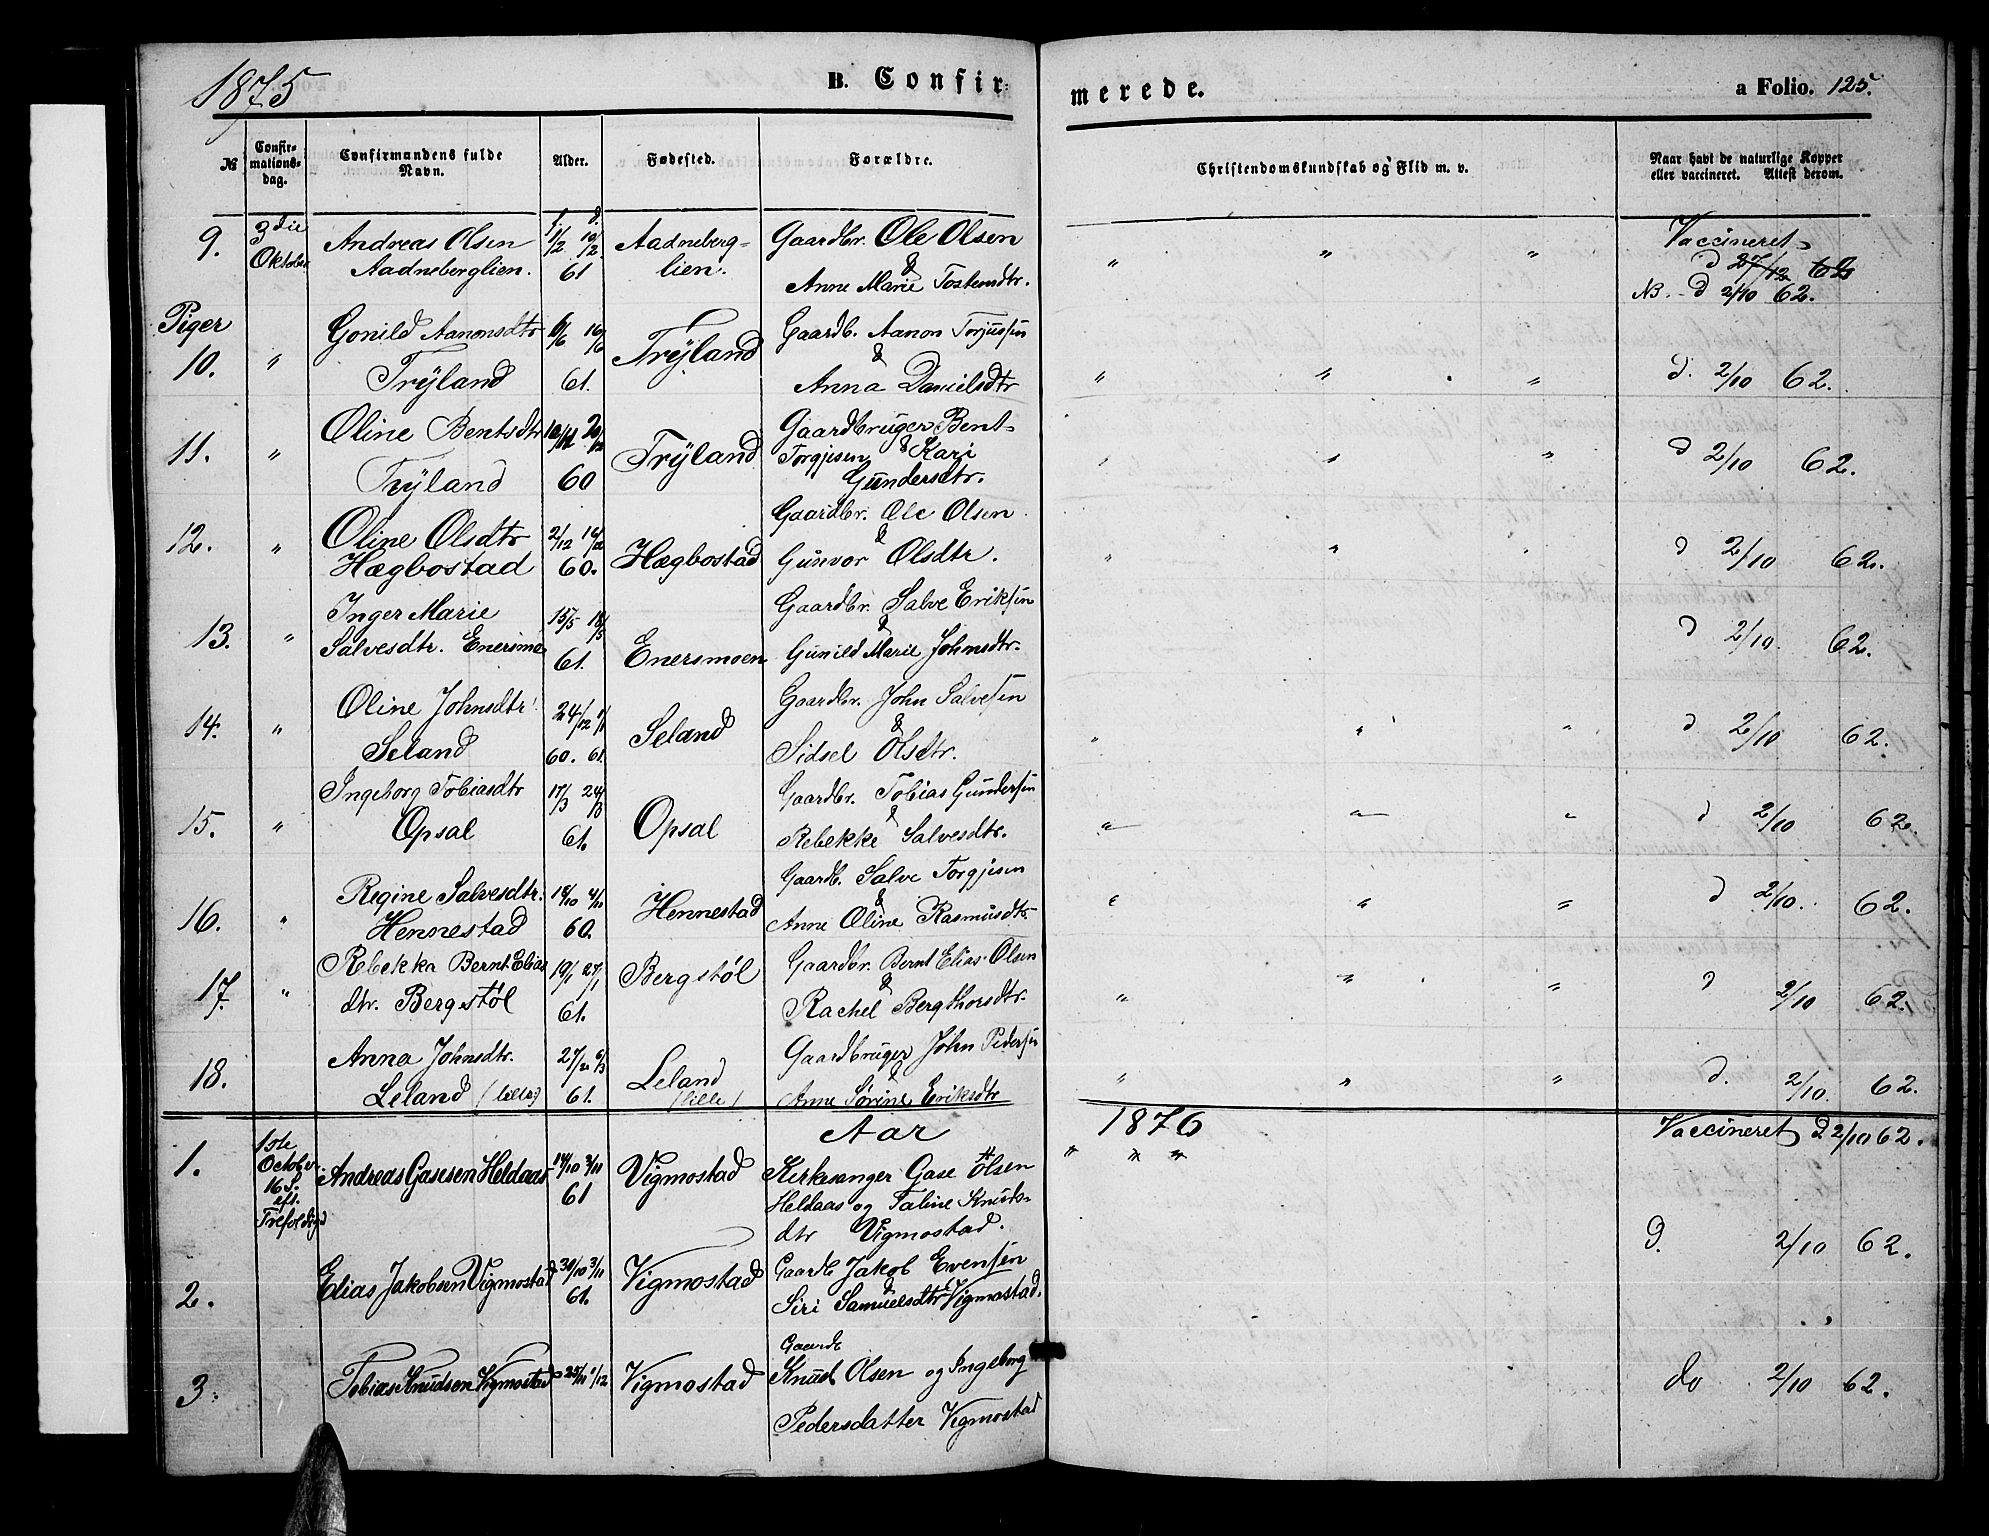 1875
B. Confir-
merede.
a Folio. 125.
No
Confir-
mations-
dag.
Confirmandens fulde
Navn.
Alder.
Fødested.
Forældre.
Christendomskundskab og Flid m. v.
Naar havt de naturlige Kopper
eller vaccineret. Attest derom.
9. 3die Andreas Olsen 1/2 10/2 Aadneberg- Gaardbr. Ole Olsen " " " Vaccineret
Oktober Aadneberglien. 61 lien. & d 27/12 62
Anne Marie Tostensdtr. NB. - d 2/10 62.
Piger Gonild Aanonsdtr 6/6 16/6 Tryland Gaardb. Aanon Torjussen
10. " Tryland 61. & " " " d. 2/10 62.
Anna Danielsdtr
11. " Oline Bentsdtr Tryland Gaardbruger Bent " " " d 2/10 62.
Tryland 60 Torgjesen & Kari
Gundersdtr.
12. " Oline Olsdtr 2/12 Hægbostad Gaardbr. Ole Olsen " " " d 2/10 62.
Hægbostad 60. & Gunvor Olsdtr.
13. " Inger Marie 15/5 18/5 Enersmoen Gaardbr. Salve Eriksen d 2/10 62.
Salvesdtr. Enersmo 61. & Gunild Marie Johnsdtr.
14. " Oline Johnsdtr 24/12 1/1 Seland Gaardbr. John Salvesen " " " d 2/10 62.
Seland 60. 61. & Sidsel Olsdtr.
15. " Ingeborg Tobiasdtr 17/3 24/3 Opsal Gaardbr. Tobias Gundersen " " " d 2/10 62.
Opsal 61. & Rebekke Salvesdtr.
16. " Regine Salvesdtr. 18/10 Hennestad Gaardb. Salve Torgjesen " " " d 2/10. 62.
Hennestad 60. & Anne Oline Rasmusdtr.
17. " Rebekka Bernt Elias 19/1 27/1 Bergstøl Gaardbr. Bernt Elias Olsen " " " d 2/10 62.
dtr. Bergstøl 61. & Rachel Bergthorsdtr.
18. Anna Johnsdtr. 27/2 6/3 Leland Gaardbruger John Pedersen " " " d. 2/10. 62.
Leland (lille) 61. (lille) & Anne Sørine Eriksdtr
Aar 1876
1. 1ste Andreas Gasesen Heldaas 14/10 3/11 Vigmostad Kirkesanger Gase Olsen " " " Vaccineret d 2/10 62.
October 61 Heldaas og Taline Knuts-
16 S. dtr Vigmostad.
eft.
Trefoldigd
2. Elias Jakobsen Vigmostad 30/10 3/11 Vigmostad Gaardb Jakob Evensen d. 2/10 62.
61. & Siri Samuelsdtr Vigmostad.
3. Tobias Knudsen Vigmostad 25/11 1/12 Vigmostad Gaardb
Knud Olsen og Ingeborg do 2/10 62.
Pedersdatter Vigmostad